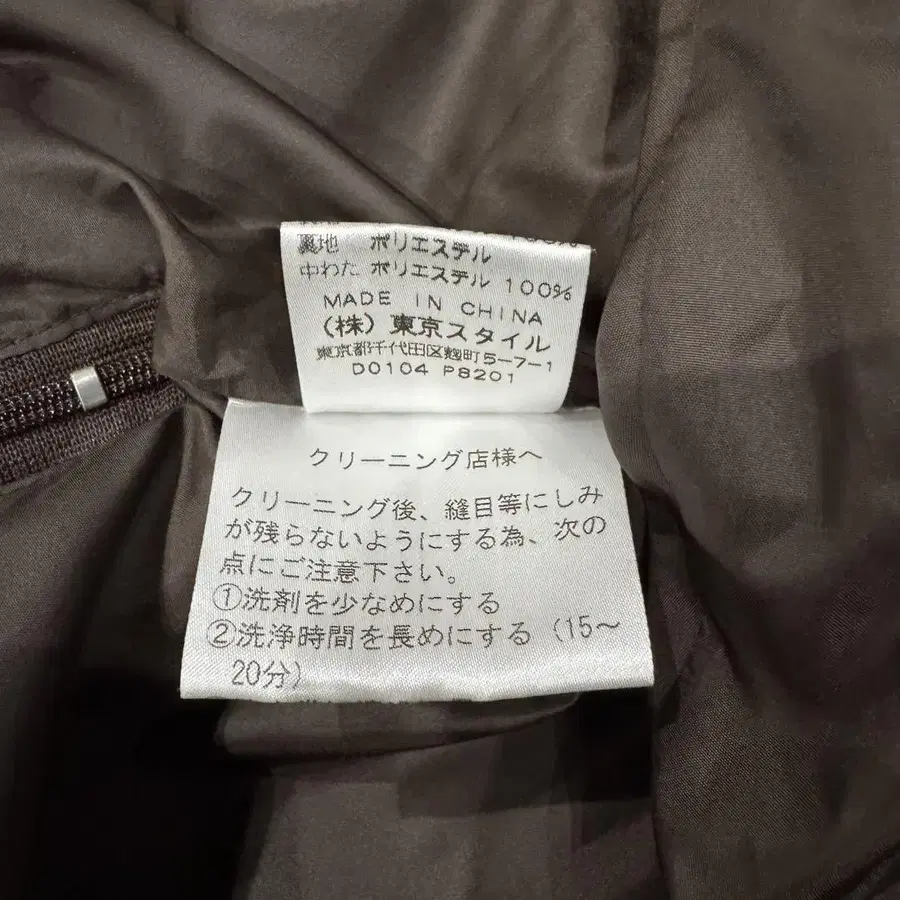 裏地 ポリエステル
中わた ポリエステル 100%
MADE IN CHINA
(株)東京スタイル
東京都千代田区麹町5-7-1
D0104 P8201
クリーニング店様へ
クリーニング後、縫目等にしみ
が残らないようにする為、次の
点にご注意下さい。
①洗剤を少なめにする
②洗浄時間を長めにする (15～
20分)